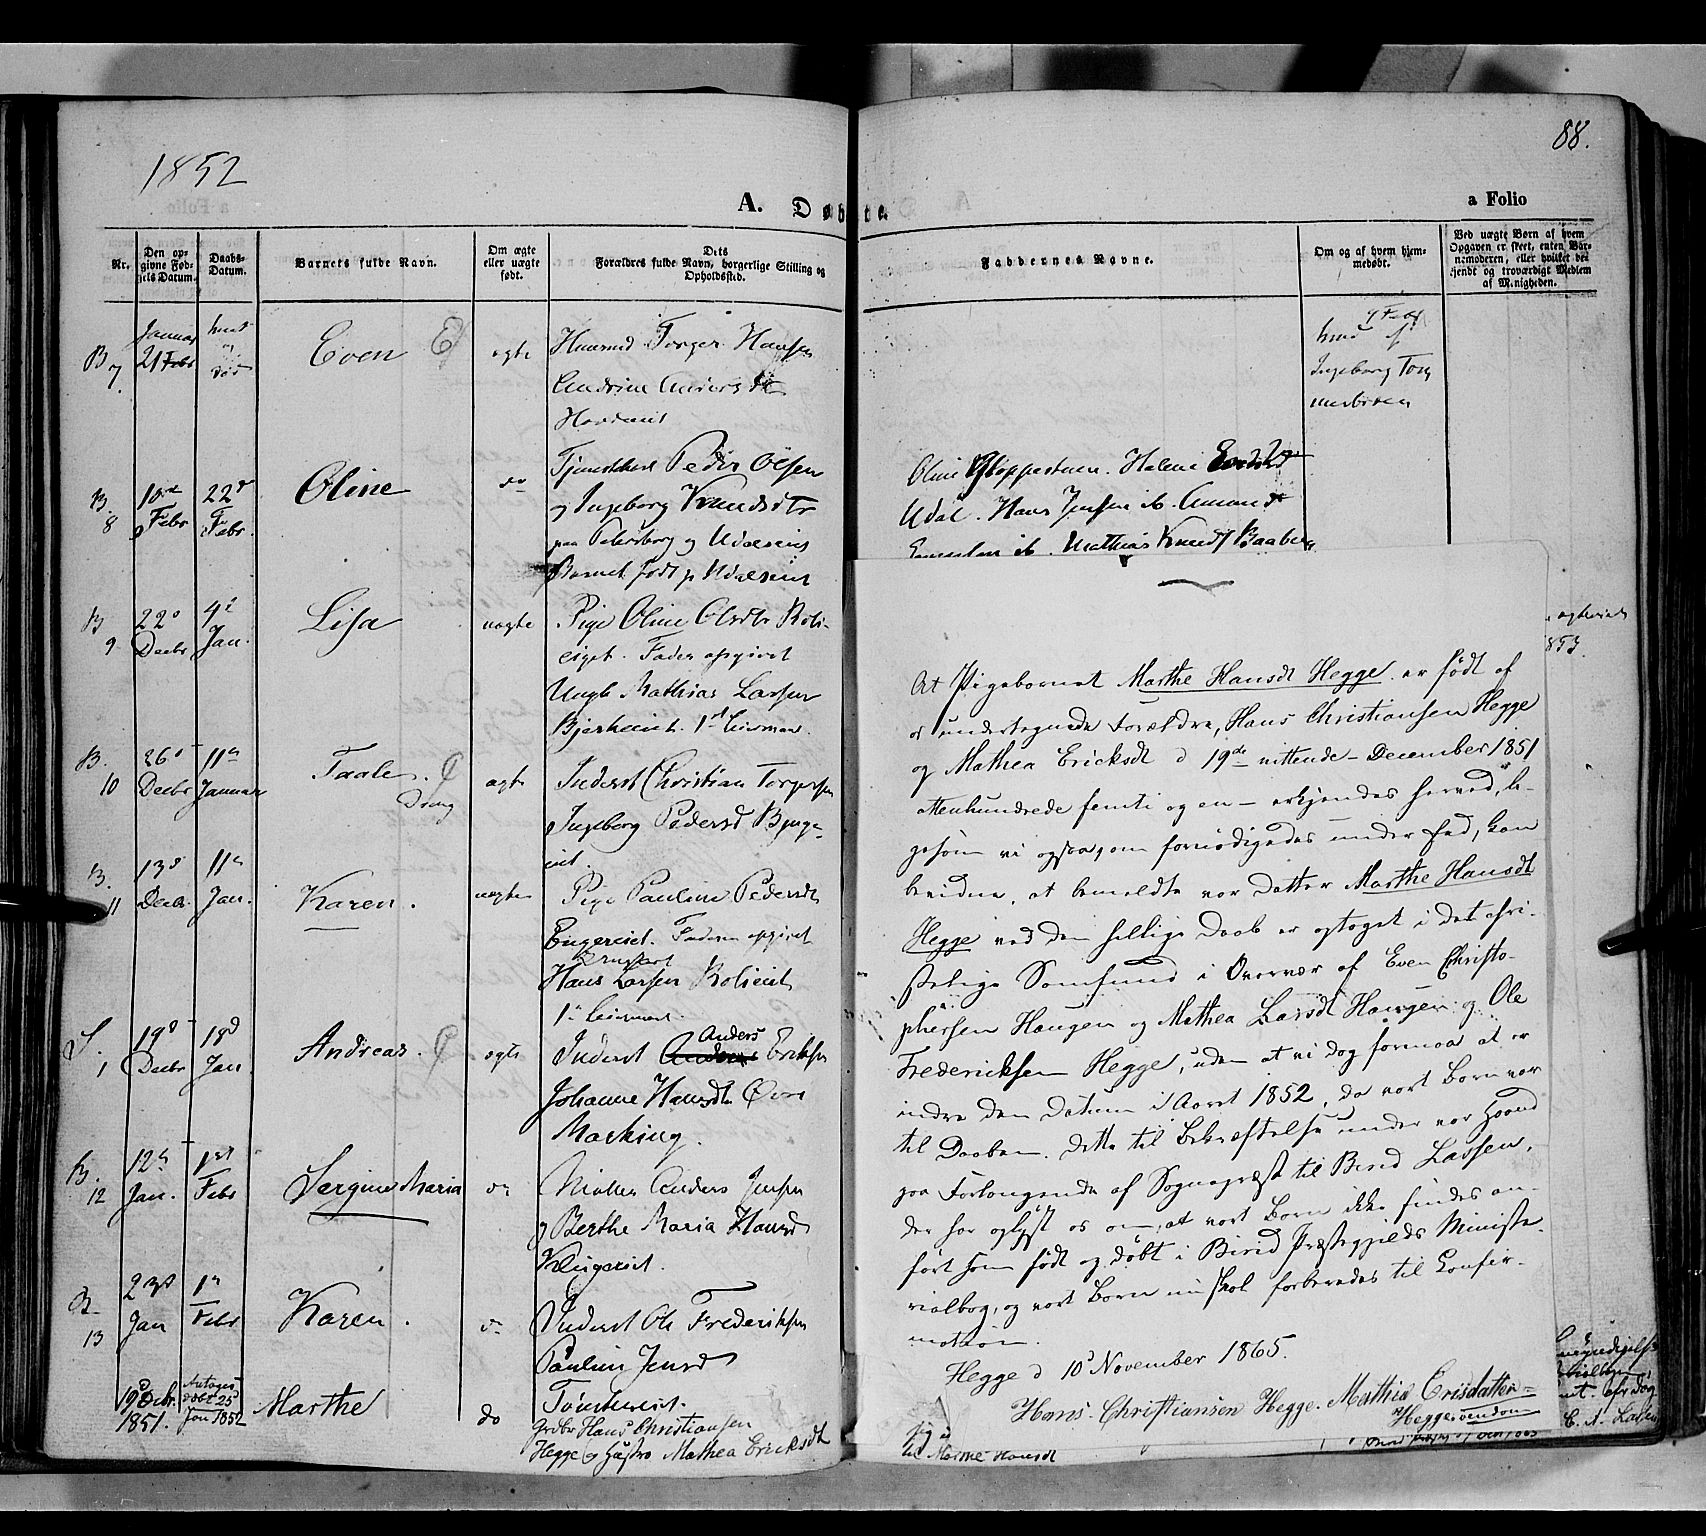 1852
88.
A. Døbte.
a Folio
Nr.
Den op-
givne Fød-
sels Datum.
Daabs-
Datum.
Barnets fulde Navn.
Om ægte
eller uægte
født.
Dets
Forældres fulde Navn, borgerlige Stilling og
Opholdssted.
Faddernes Navne.
Om og af hvem hjem-
medøbt.
Ved uægte Børn af hvem
Opgaven er skeet, enten Bar-
nemoderen, eller hvilket be-
kjendt og troværdigt Medlem
af Menigheden.
B 7. Januar 21 Febr
Even
ægte
Torger Hansen
Andrine Andersdt
hmd af
Ingeborg
B. 8 10de Febr 22de Febr.
Oline
do
Peder Olsen
og Ingeborg Knudsdtr
paa Petersborg og Udalseiet
Barnet født p Udalseiet
Oline Helene
Udal. Hans Jensen ib.
ib. Mathias Knuds
B 9. 22d Decbr 4d Jan.
Lisa
uægte
Pige Oline Olsdtr Roli-
eiget. Fader opgivet
Ungk Mathias Larsen
B. 10 26d Decbr 11te Januar
Taale. Dreng
ægte
Inderst Christian Torgersen
Ingeborg Pedersd
eiet.
B. 11 13d Decbr. 11te Jan.
Karen.
uægte
Pige Pauline Pedersdt
Engereiet. Faderen opgivet
Hans Larsen Rolieiet
S. 1 19d Decbr 18d Jan
Andreas.
ægte
Anders
Inderst Eriksen
Johanne Hansdt Øvre
Mæhlum.
B. 12 12te Jan. 1ste Febr
Sergine Maria
do
Anders Jensen
og Berthe Maria Hansd
B. 13 23d Jan 1ste Febr
Karen.
do
Inderst Ole Frederiksen
Pauline Jensd
19d Decbr. 1851. døbt 25d Jan 1852
Marthe
do
Grdbr Hans Christiansen
Hegge og Hustru Mathea Ericksdt
At Pigebarnet Marthe Hansdt Hegge er født af
os undertegnede Forældre, Hans Christiansen Hegge
og Mathea Ericksdt d 19de nittende December 1851
attenhundrede femti og en erkjendes herved, li-
gesom vi ogsaa, om fornødigedes under Eed, kan
bevidne, at bemeldte vor Datter Marthe Hansdt
Hegge ved den hellige Daab er optaget i det chri-
stelige Samfund i Overvær af Even Christo-
phersen Haugen og Mathea Larsdt Haugen og Ole
Fredericksen Hegge, uden at vi dog formaa at er-
indre den Datum i Aaret 1852, da vort Barn var
til Daaben. Dette til Bekræftelse under vor Haand
paa Forlangende af Sognepræst til Birid Lassen,
der har oplyst os om, at vort Barn ikke findes an-
ført som født og døbt i Birid Præstegjelds Ministe-
rialbog, og vort Barn nu skal forberedes til Confir-
mation.
Hegge d 10d November 1865.
Hans Christiansen Hegge. Mathia Erisdatter
Hegge
853.
til Marthe Hansdt